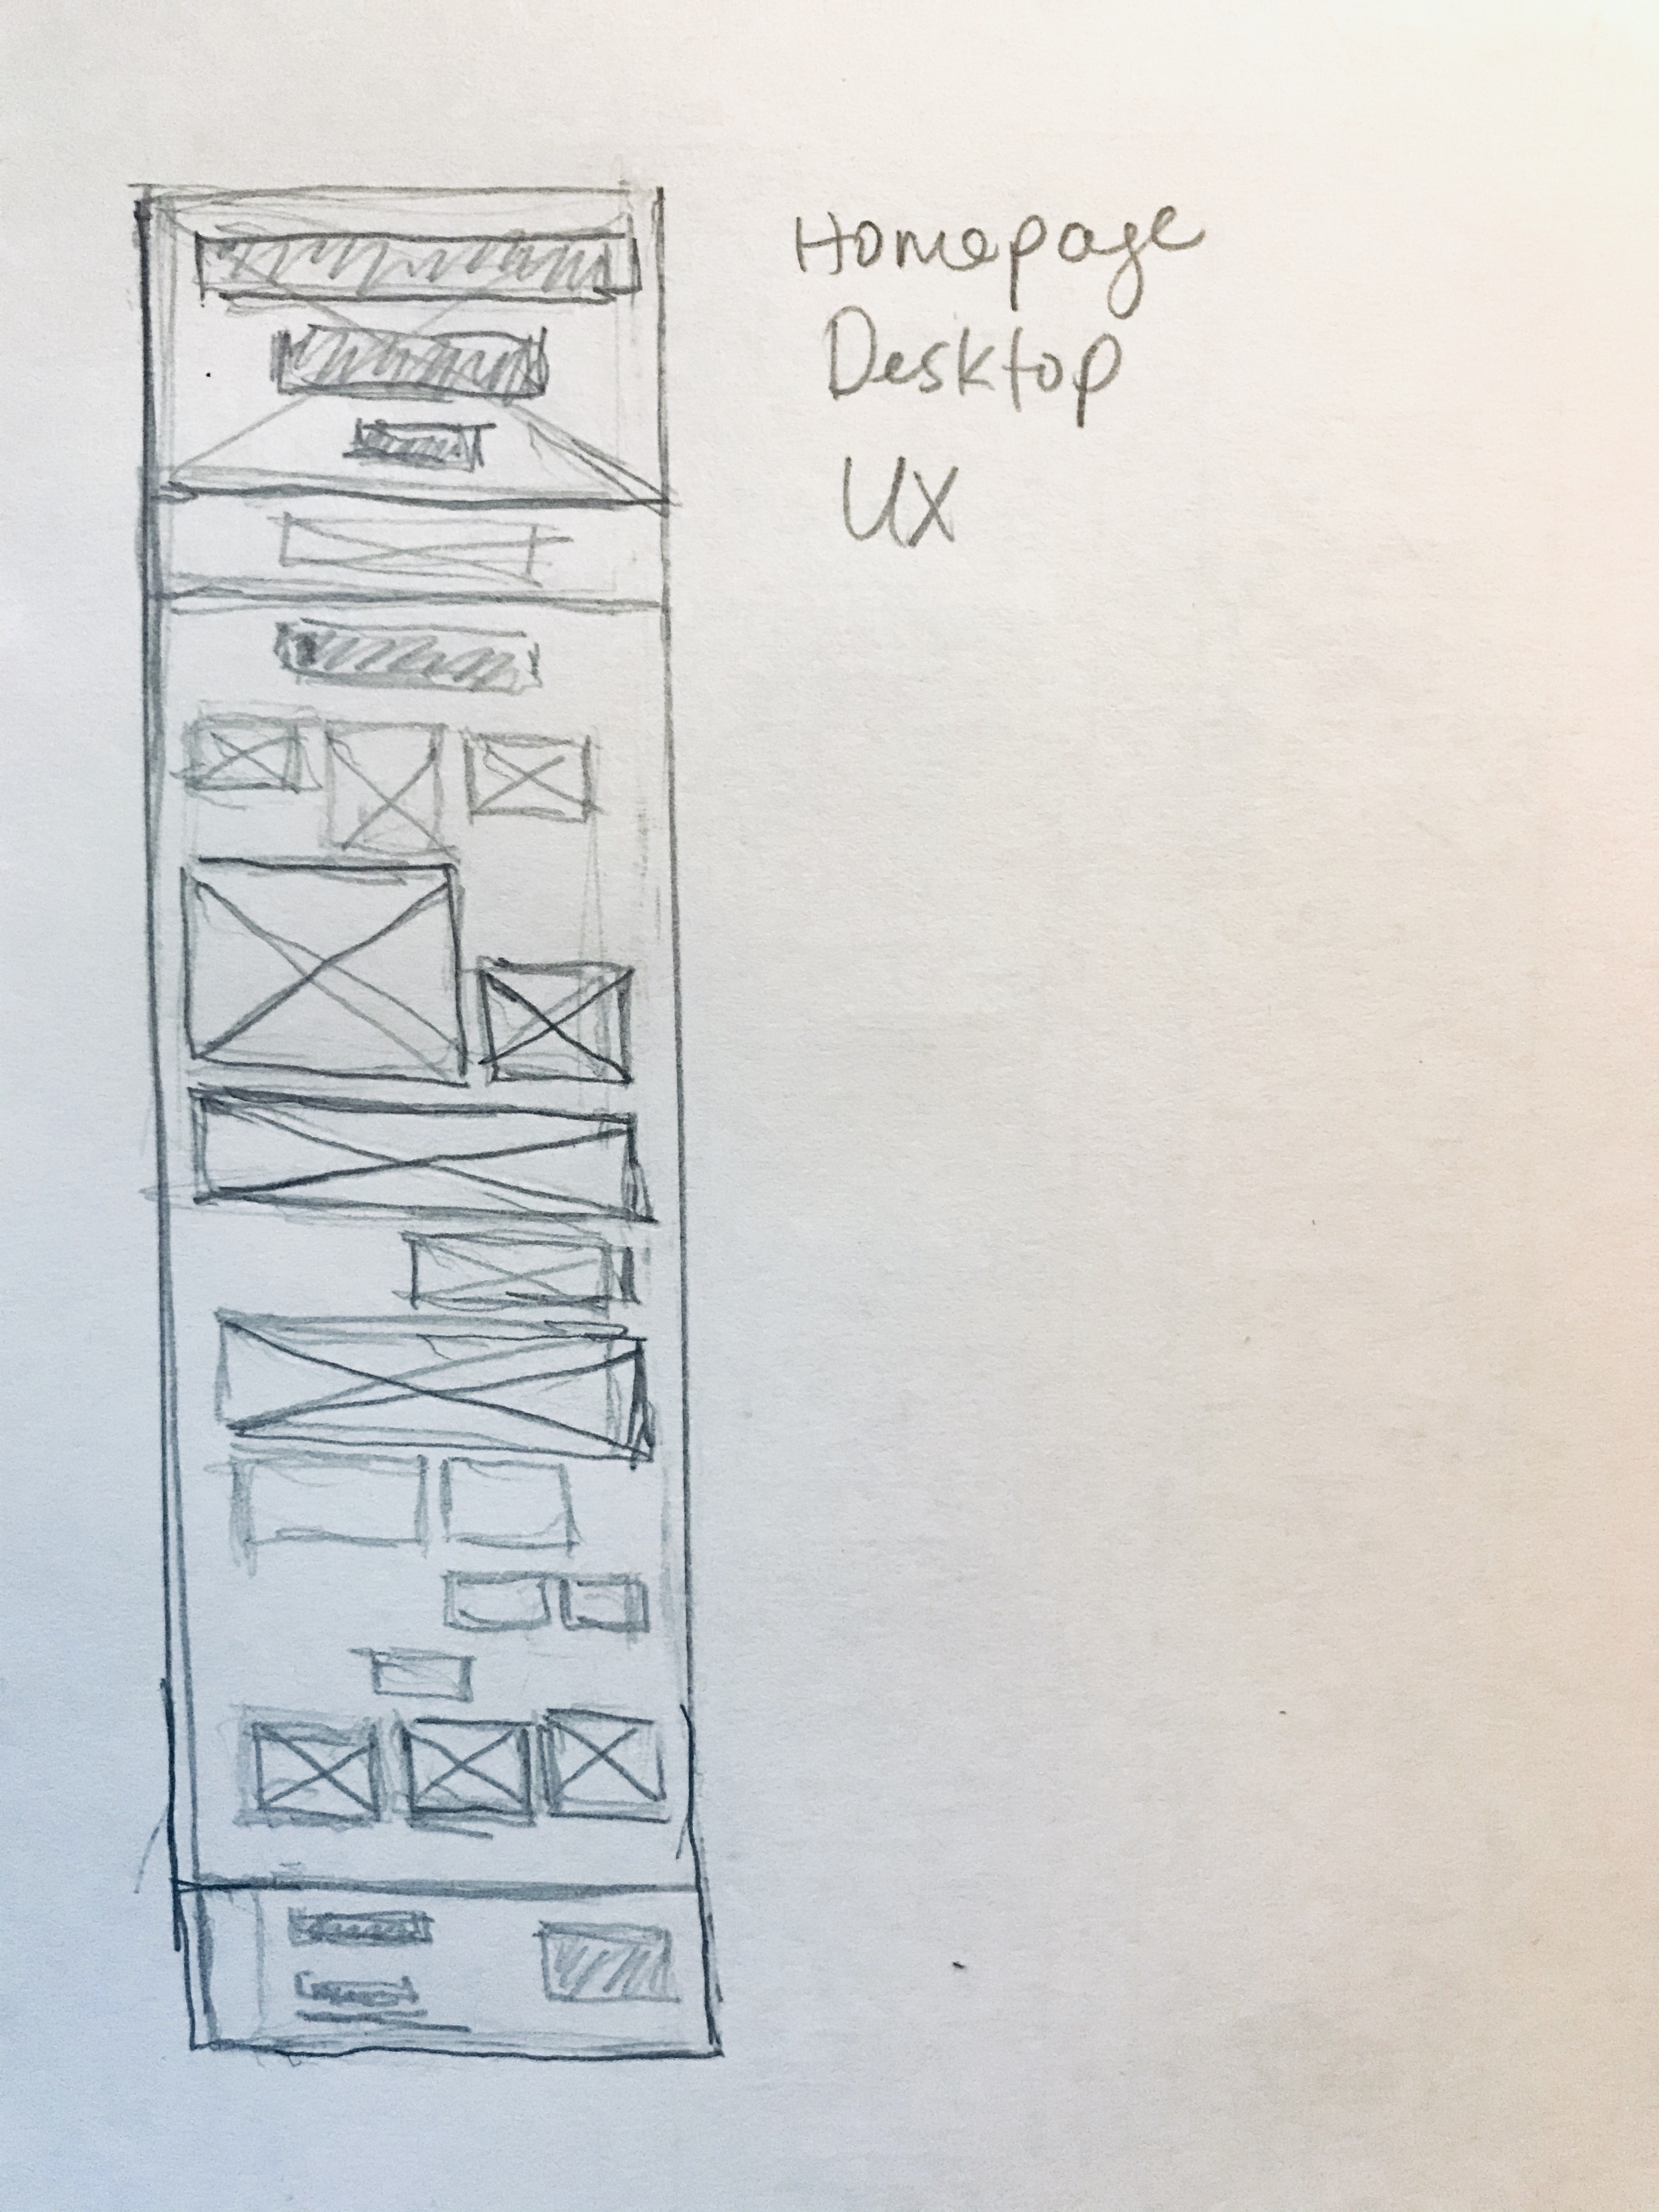 Homepage
Desktop
UX